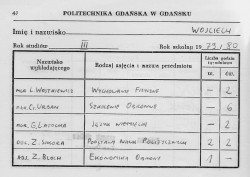 42 POLITECHNIKA GDAŃSKA W GDAŃSKU
Imię i nazwisko WOJCIECH
Rok studiów III Rok szkolny 1979/80
Nazwisko wykładającego Rodzaj zajęć i nazwa przedmiotu Liczba godzin tygodniowo
w. ćw.
MGR L. WOJTKIEWICZ WYCHOWANIE FIZYCZNE — 2
C. URBAN SZKOLENIE OBRONNE — 6
MGR G. JĘZYK NIEMIECKI — 2
DOC. Z. PODSTAWY NAUK POLITYCZNYCH 2 2
ADJ. Z. BLOCH EKONOMIKA 1 —